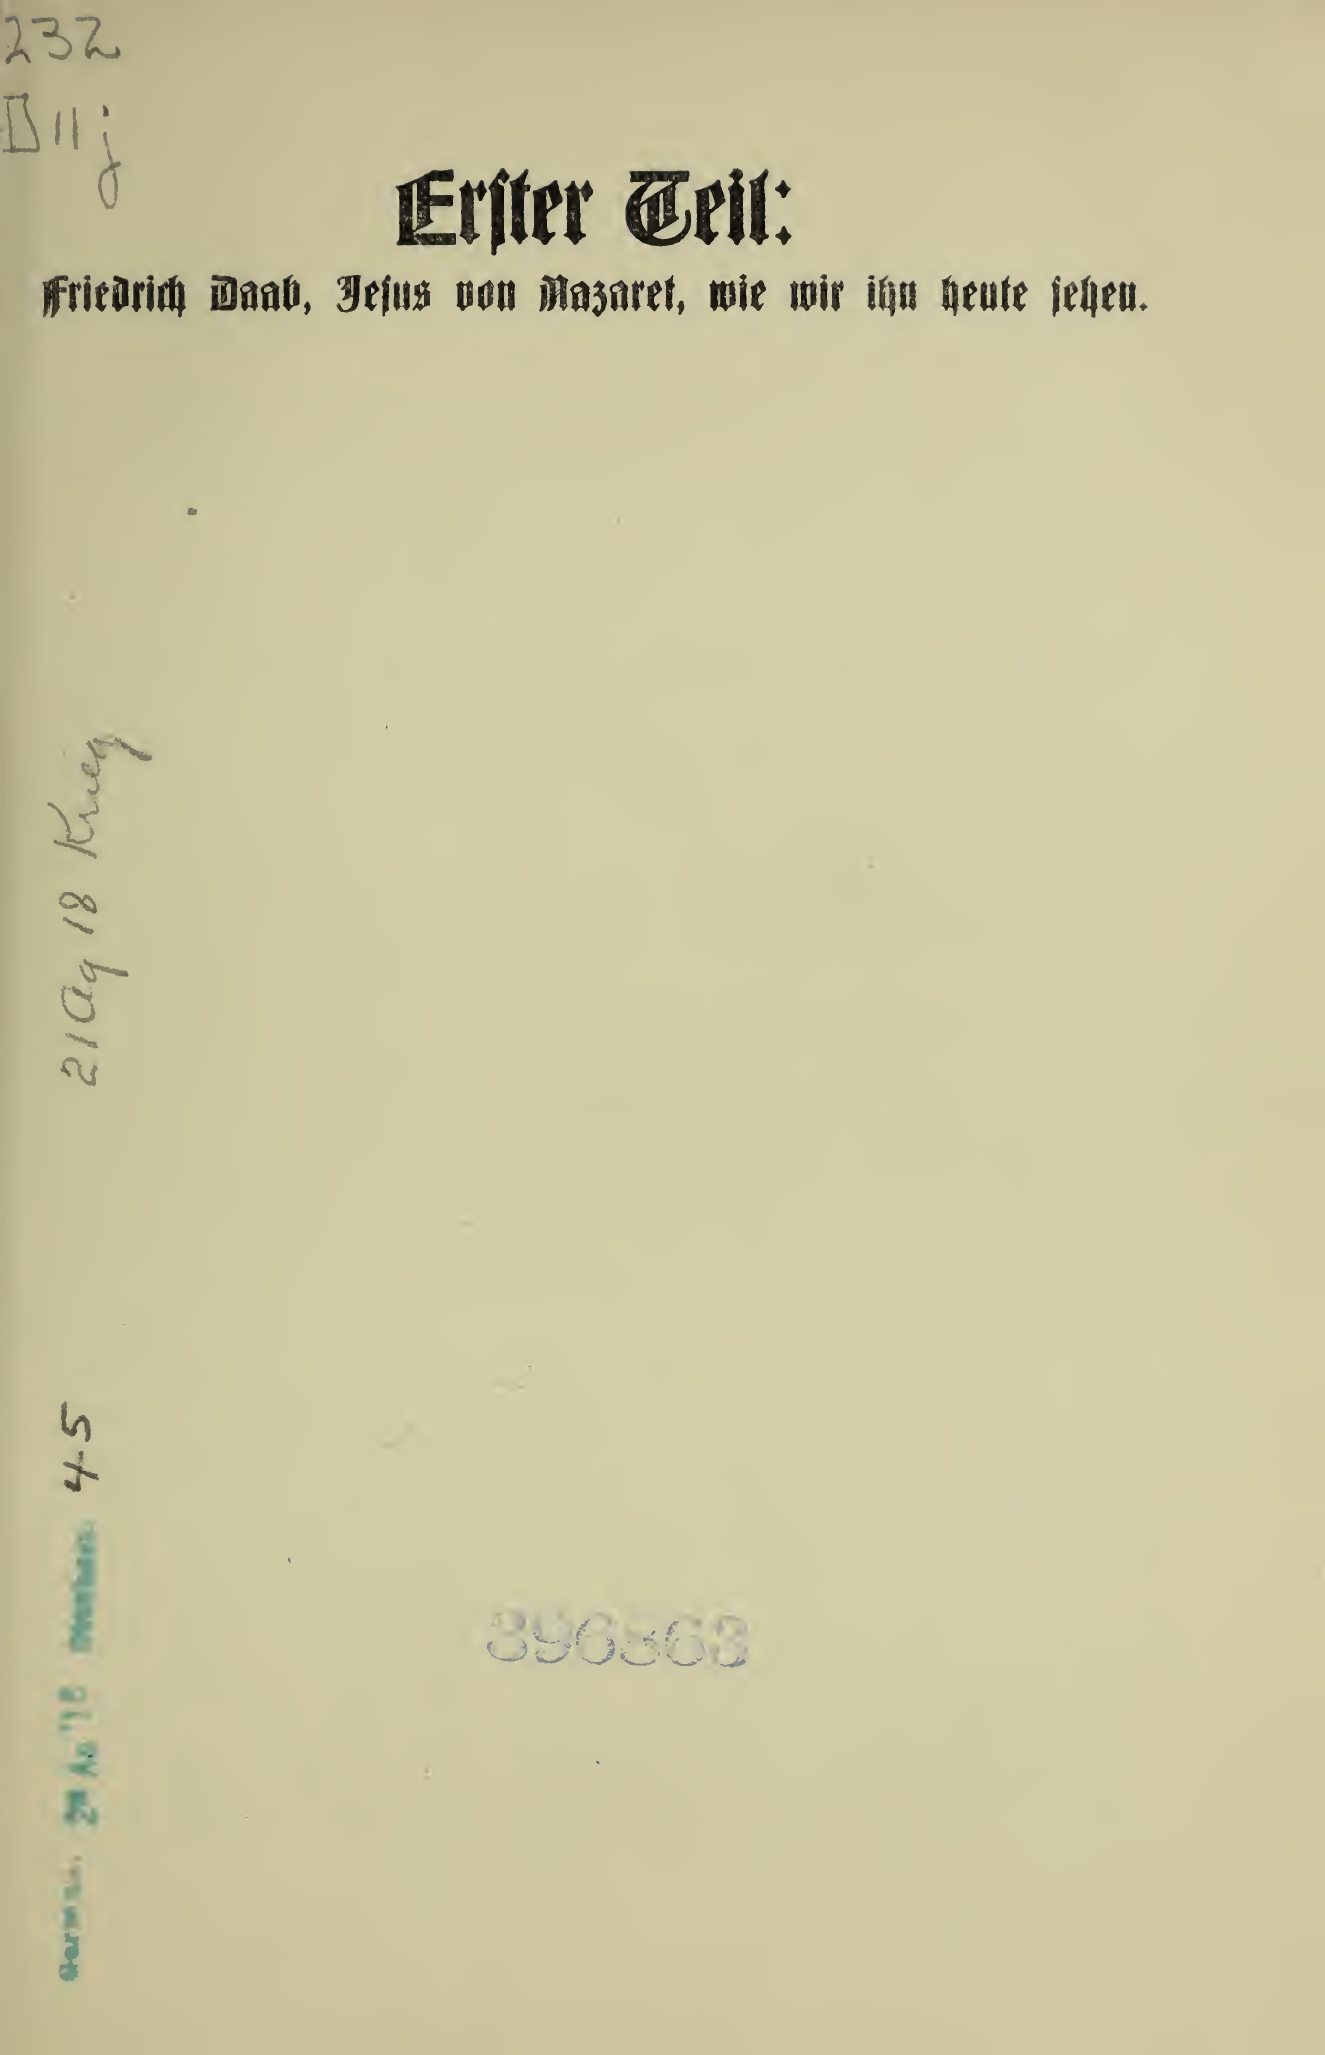 232
D11j
Erster Teil:
Friedrich Daab, Jesus von Nazaret, wie wir ihn heute sehen.
21 Ag 18 Krieg
45
396563